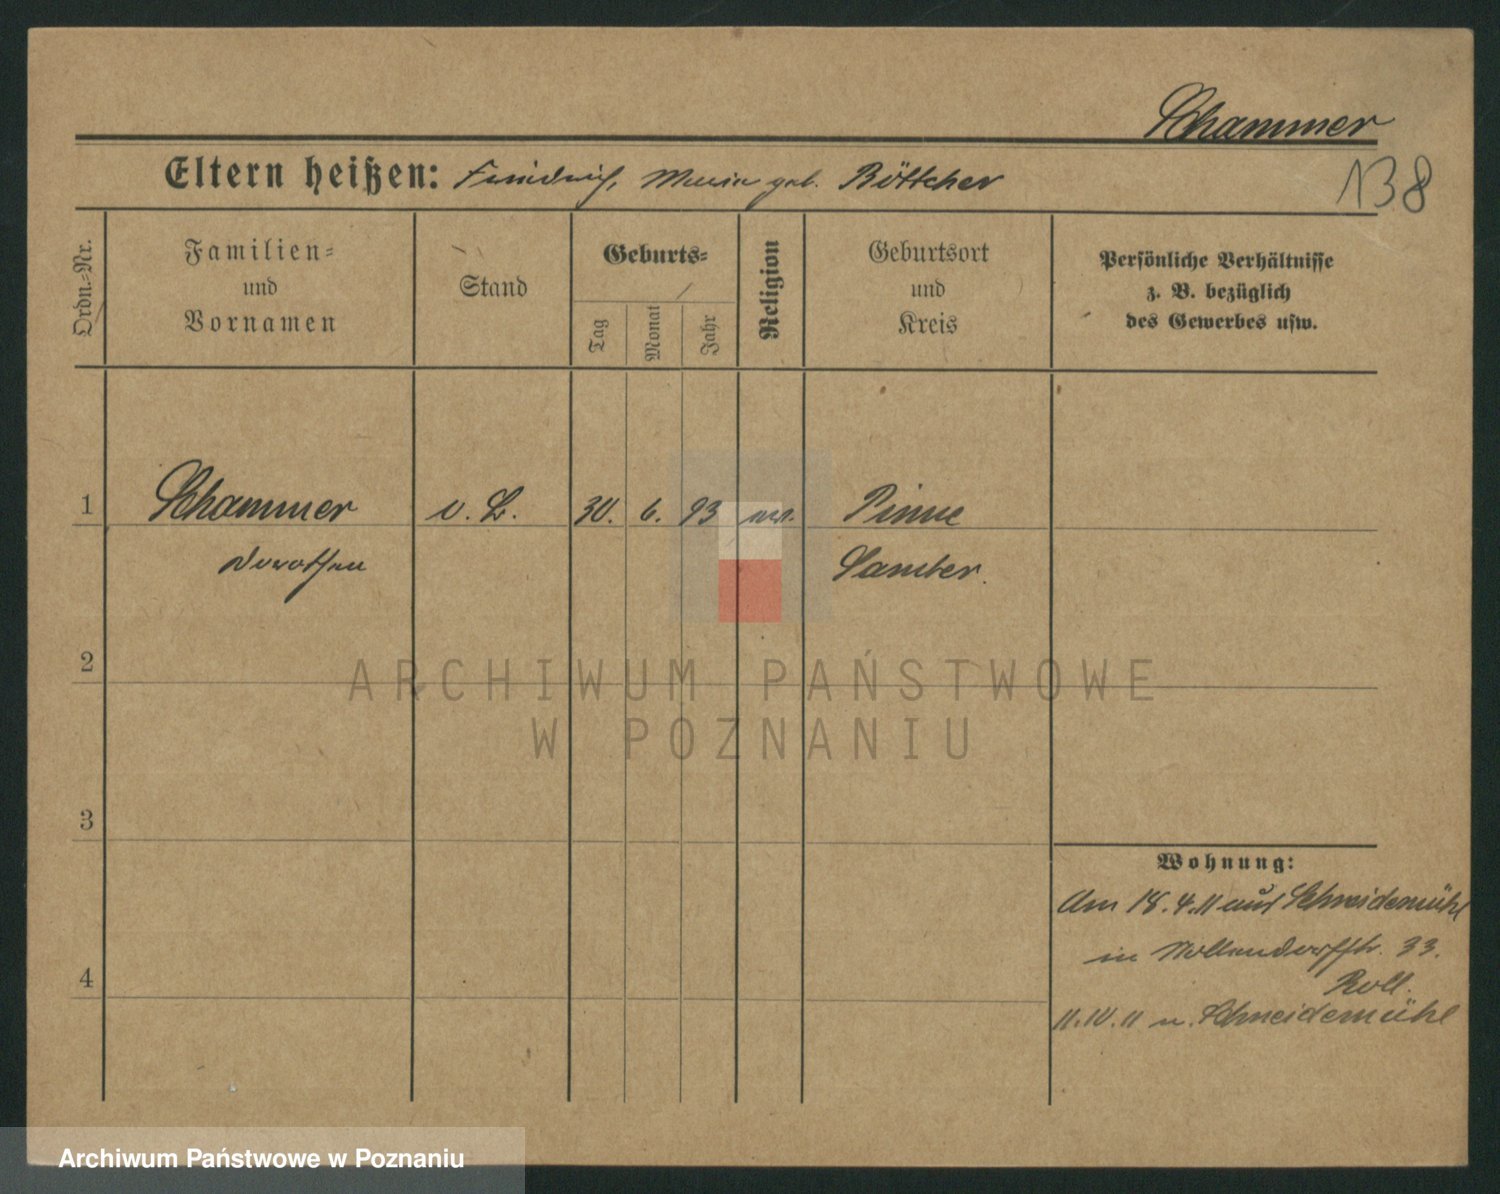 Schammer
Eltern heißen: Friedrich, Maria geb. Böttcher
138
Ordn.-Nr.
Familien-
und
Vornamen
Stand
Geburts-
Tag
Monat
Jahr
Religion
Geburtsort
und
Kreis
Persönliche Verhältnisse
z. B. bezüglich
des Gewerbes usw.
1
Schammer
30. 6. 93
Pinne
Dorothea
Samter.
2
ARCHIWUM PAŃSTWOWE
W POZNANIU
3
Wohnung:
Am 18.4.11 aus Schneidemühl
in Nollendorfstr. 33.
4
11.10.11 n. Schneidemühl
Archiwum Państwowe w Poznaniu